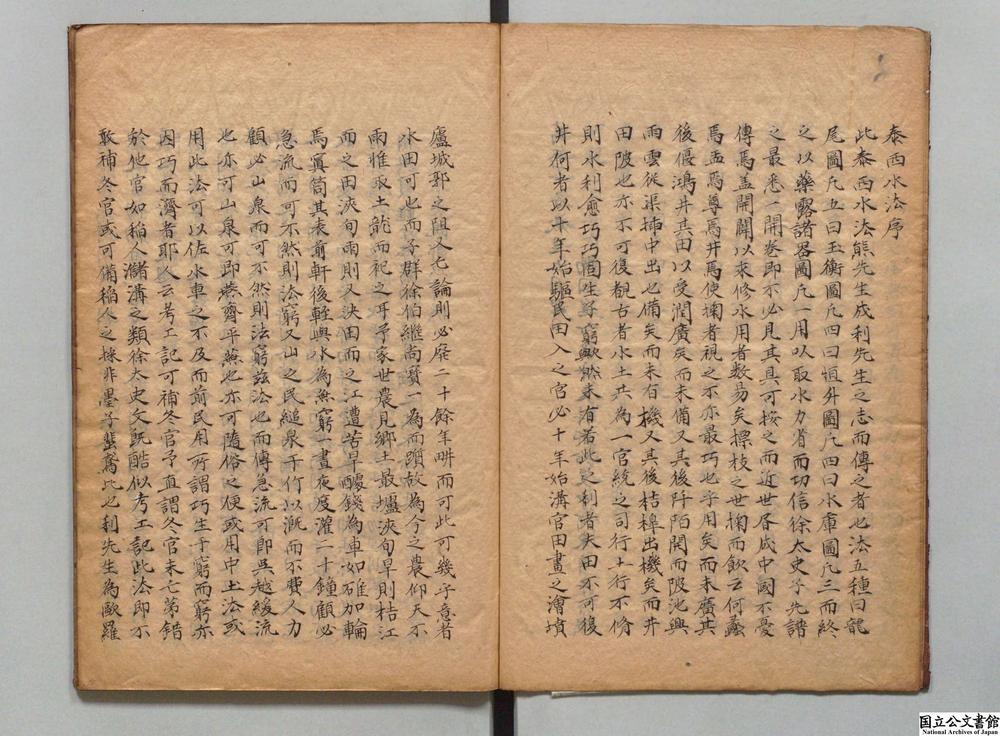 泰西水法序
此泰西水法熊先生成利先生之志而傳之者也法五種曰龍
尾圖凡五曰玉衡圖凡四曰恒升圖凡四曰水庫圖凡三而終
之以藥露諸器圖凡一用以取水力省而功信徐太史子先譜
之最悉一開卷即不必見其具可按之而近世屠成中國不憂
傳焉蓋開闢以來修水用者數易矣摽枝之世掬而飲云何蠡
焉盂焉尊焉井焉使掬者視之不亦最巧也乎用矣而未廣其
後偃潴井其田以受潤廣矣而未備又其後阡陌開而陂池興
雨雲從渠揷中出也備矣而未有機又其後桔槔出機矣而井
田陂也亦不可復覩古者水土共為一官統之司行土行不脩
則水利愈巧巧固生于窮歟然未有若此之利者夫田不可復
井何者以十年始驅民田入之官必十年始溝官田畫之澮墳
廬城郭之阻又无論則必產二十餘年畊而可此可幾乎意者
水田可也而子群徐伯繼尚璽一為而躓故為今之農仰天不
雨惟取土龍而祀之耳予家世農見鄉土最墟浹旬旱則桔江
而之田浹旬雨則又決田而之江遭苦旱醵錢為車如碓加輪
焉寘筒其表前軒後輊與水為無窮一晝夜度灌二十鐘顧必
急流而可不然則法窮又山之民縋泉于竹以溉而不費人力
顧必山泉而可不然則法窮玆法也而傳急流可即吳越緩流
也亦可山泉可即燕齊平蕪也亦可隨俗之便或用中土法或
用此法可以佐水車之不及而前民用所謂巧生于窮而窮亦
因巧而濟者耶人云考工記可補冬官予直謂冬官未亡第錯
於他官如稻人瀦溝之類徐太史文既酷似考工記此法即不
敢補冬官或可備稻人之採非墨子蜚鳶比也利先生為歐羅
国立公文書館
National Archives of Japan